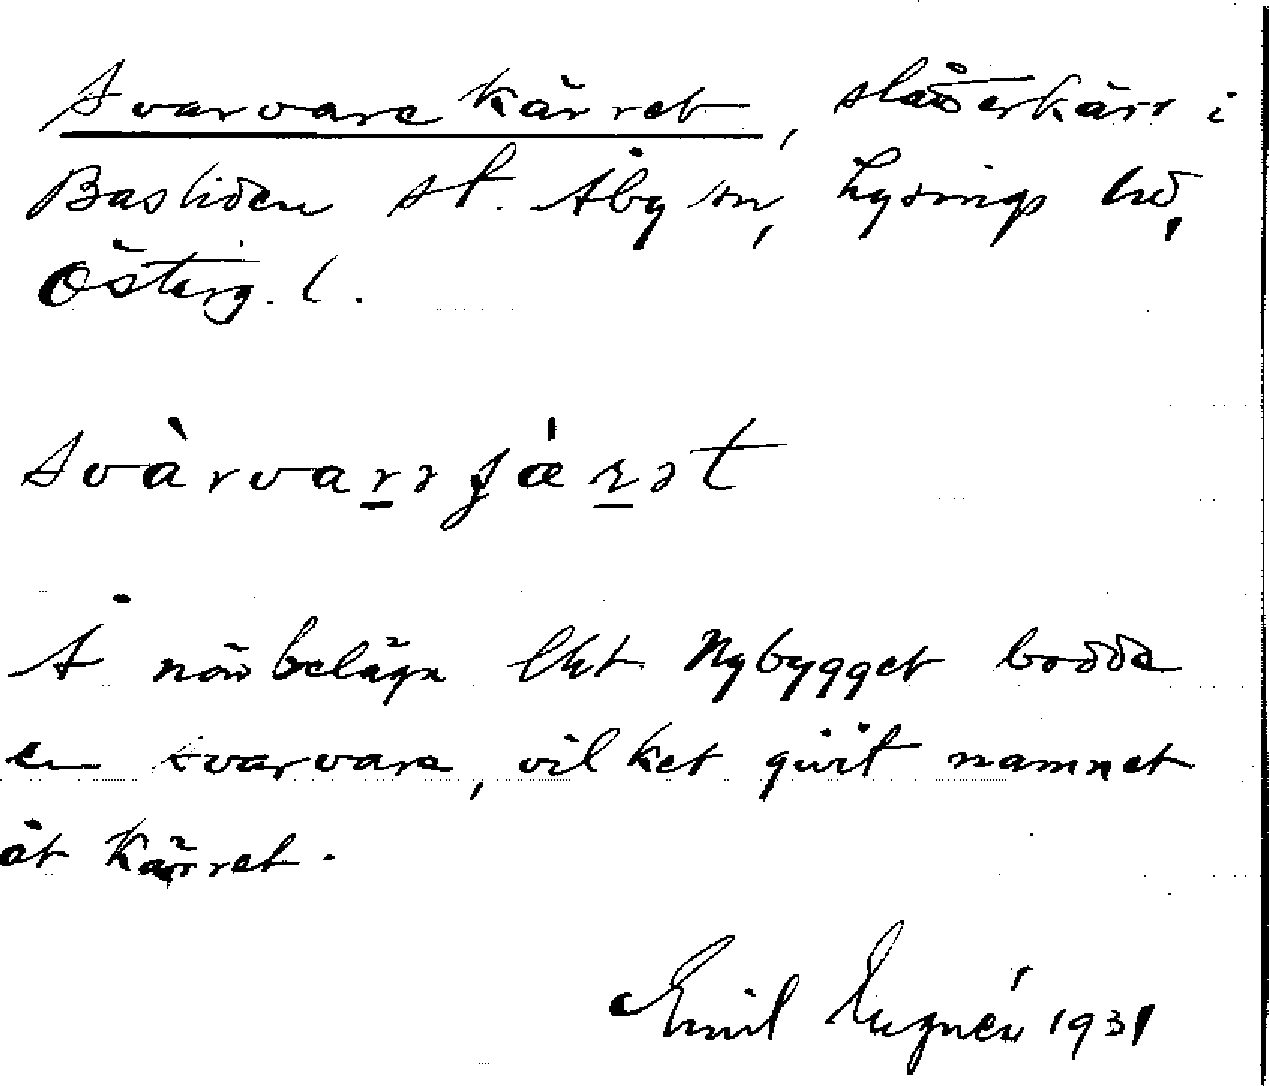 Svarvare kärret, slåtterkärr i
Basliden st. Åby sn, Lysings hd,
Österg. l.
svàrvarə ʃǽrət
Å närbelägn lht Nybygget bodde
en svarvare, vilket givit namnet
åt Kärret.
Emil 1931